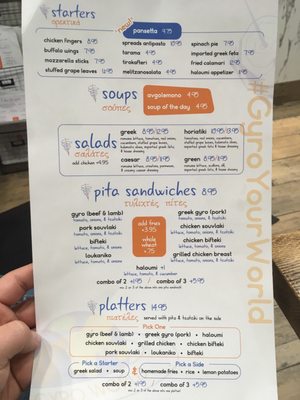 starters
ορεκτικά
new!
pansetta 4.95
chicken fingers 8.95
spreads antipasto 10.95
spinach pie 7.95
buffalo wings 7.95
tarama 4.95
imported greek feta 7.95
mozzarella sticks 7.95
tirokafteri 4.95
fried calamari 12.95
stuffed grape leaves 4.95
melitzanosalata 4.95
haloumi appetizer 8.95
soups
σούπες
avgolemono 4.95
soup of the day 4.95
salads
σαλάτες
add chicken +4.95
greek 8.95/12.95
horiatiki 10.95/13.95
caesar 8.95/11.95
green 8.95/11.95
pita sandwiches 8.95
τυλιχτές πίτες
gyro (beef & lamb)
tomato, onions, & tzatziki
pork souvlaki
tomato, onions, & tzatziki
bifteki
lettuce, tomato, onions, & tzatziki
loukaniko
lettuce, tomato, onions, & tzatziki
add fries
+3.95
whole
wheat
+.75
greek gyro (pork)
tomato, onions, & tzatziki
chicken souvlaki
lettuce, tomato, onions, & tzatziki
chicken bifteki
lettuce, tomato, onions, & tzatziki
grilled chicken breast
lettuce, tomato, onions, & tzatziki
haloumi +1
lettuce, tomato, & cucumber
combo of 2 +1.95 / combo of 3 +5.95
mix 2 or 3 of the above into one pita sandwich
platters 14.95
πιατέλες served with pita & tzatziki on the side
Pick One
gyro (beef & lamb) • greek gyro (pork) • haloumi
chicken souvlaki • grilled chicken • chicken bifteki
pork souvlaki • loukaniko • bifteki
Pick a Starter
greek salad • soup
&
Pick a Side
homemade fries • rice • lemon potatoes
combo of 2 +1.95 / combo of 3 +5.95
mix 2 or 3 of the above into one platter
#GyroYourWorld